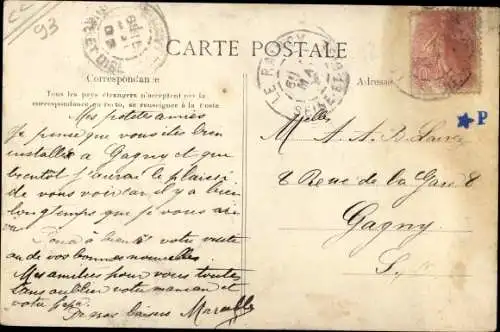 93
CARTE POSTALE
Correspondance
Adresse
Tous les pays étrangers n'acceptent pas la
correspondance au recto, se renseigner à la Poste.
LE RAINCY
SEINE ET
Mes petites amies
Je pense que vous êtes bien
installés à Gagny et que
bientot j'aurai le plaisir
de vous voir car il y a bien
longtemps que je vous ai
à bientôt votre visite
ou de vos bonnes nouvelles.
Mes amitiés pour vous toutes
sans oublier votre maman et
votre papa
Je vos baisers Marcelle
Melles
A. A. B.
8 Rue de la Gare 8
Gagny
S.
P